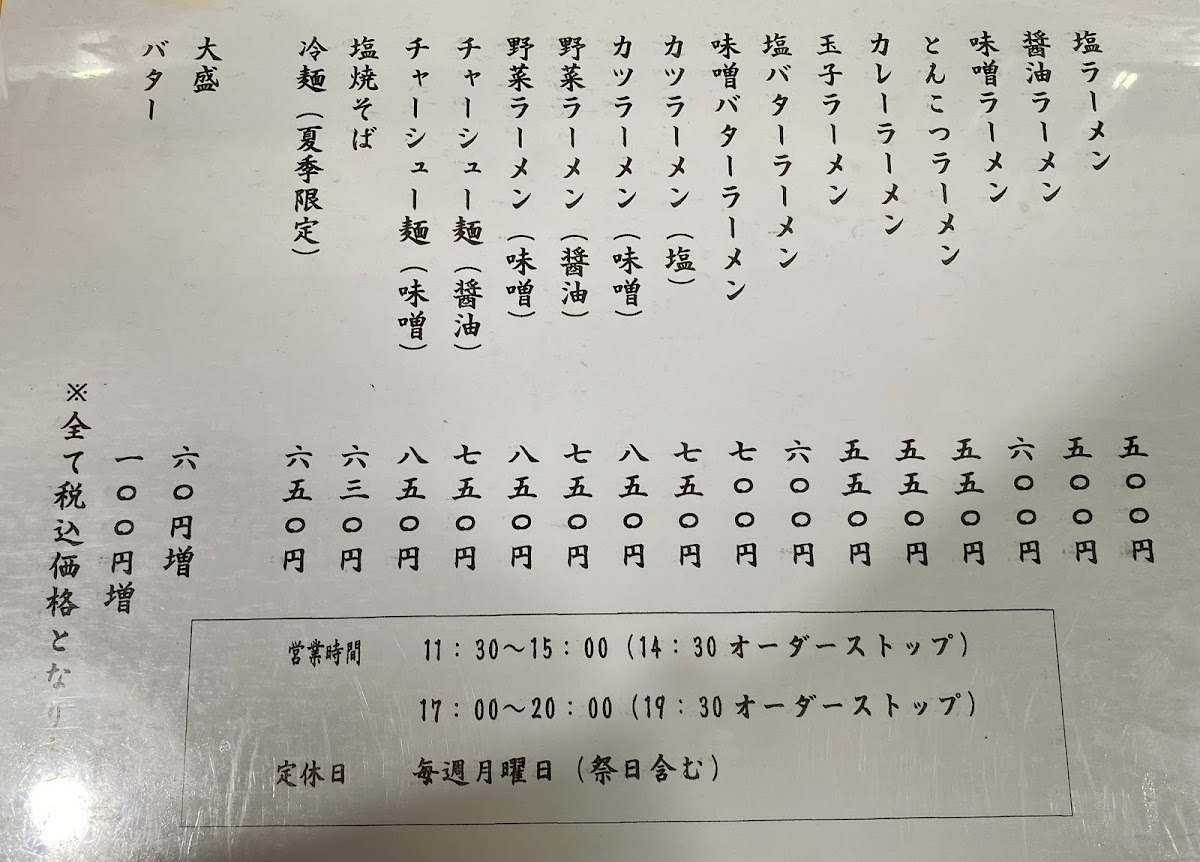 塩ラーメン 五〇〇円
醤油ラーメン 五〇〇円
味噌ラーメン 六〇〇円
とんこつラーメン 五五〇円
カレーラーメン 五五〇円
玉子ラーメン 五五〇円
塩バターラーメン 六〇〇円
味噌バターラーメン 七〇〇円
カツラーメン（塩） 七五〇円
カツラーメン（味噌） 八五〇円
野菜ラーメン（醤油） 七五〇円
野菜ラーメン（味噌） 八五〇円
チャーシュー麺（醤油） 七五〇円
チャーシュー麺（味噌） 八五〇円
塩焼そば 六三〇円
冷麺（夏季限定） 六五〇円
大盛 六〇円増
バター 一〇〇円増
※全て税込価格となり
営業時間 11：30～15：00（14：30 オーダーストップ）
17：00～20：00（19：30 オーダーストップ）
定休日 毎週月曜日（祭日含む）